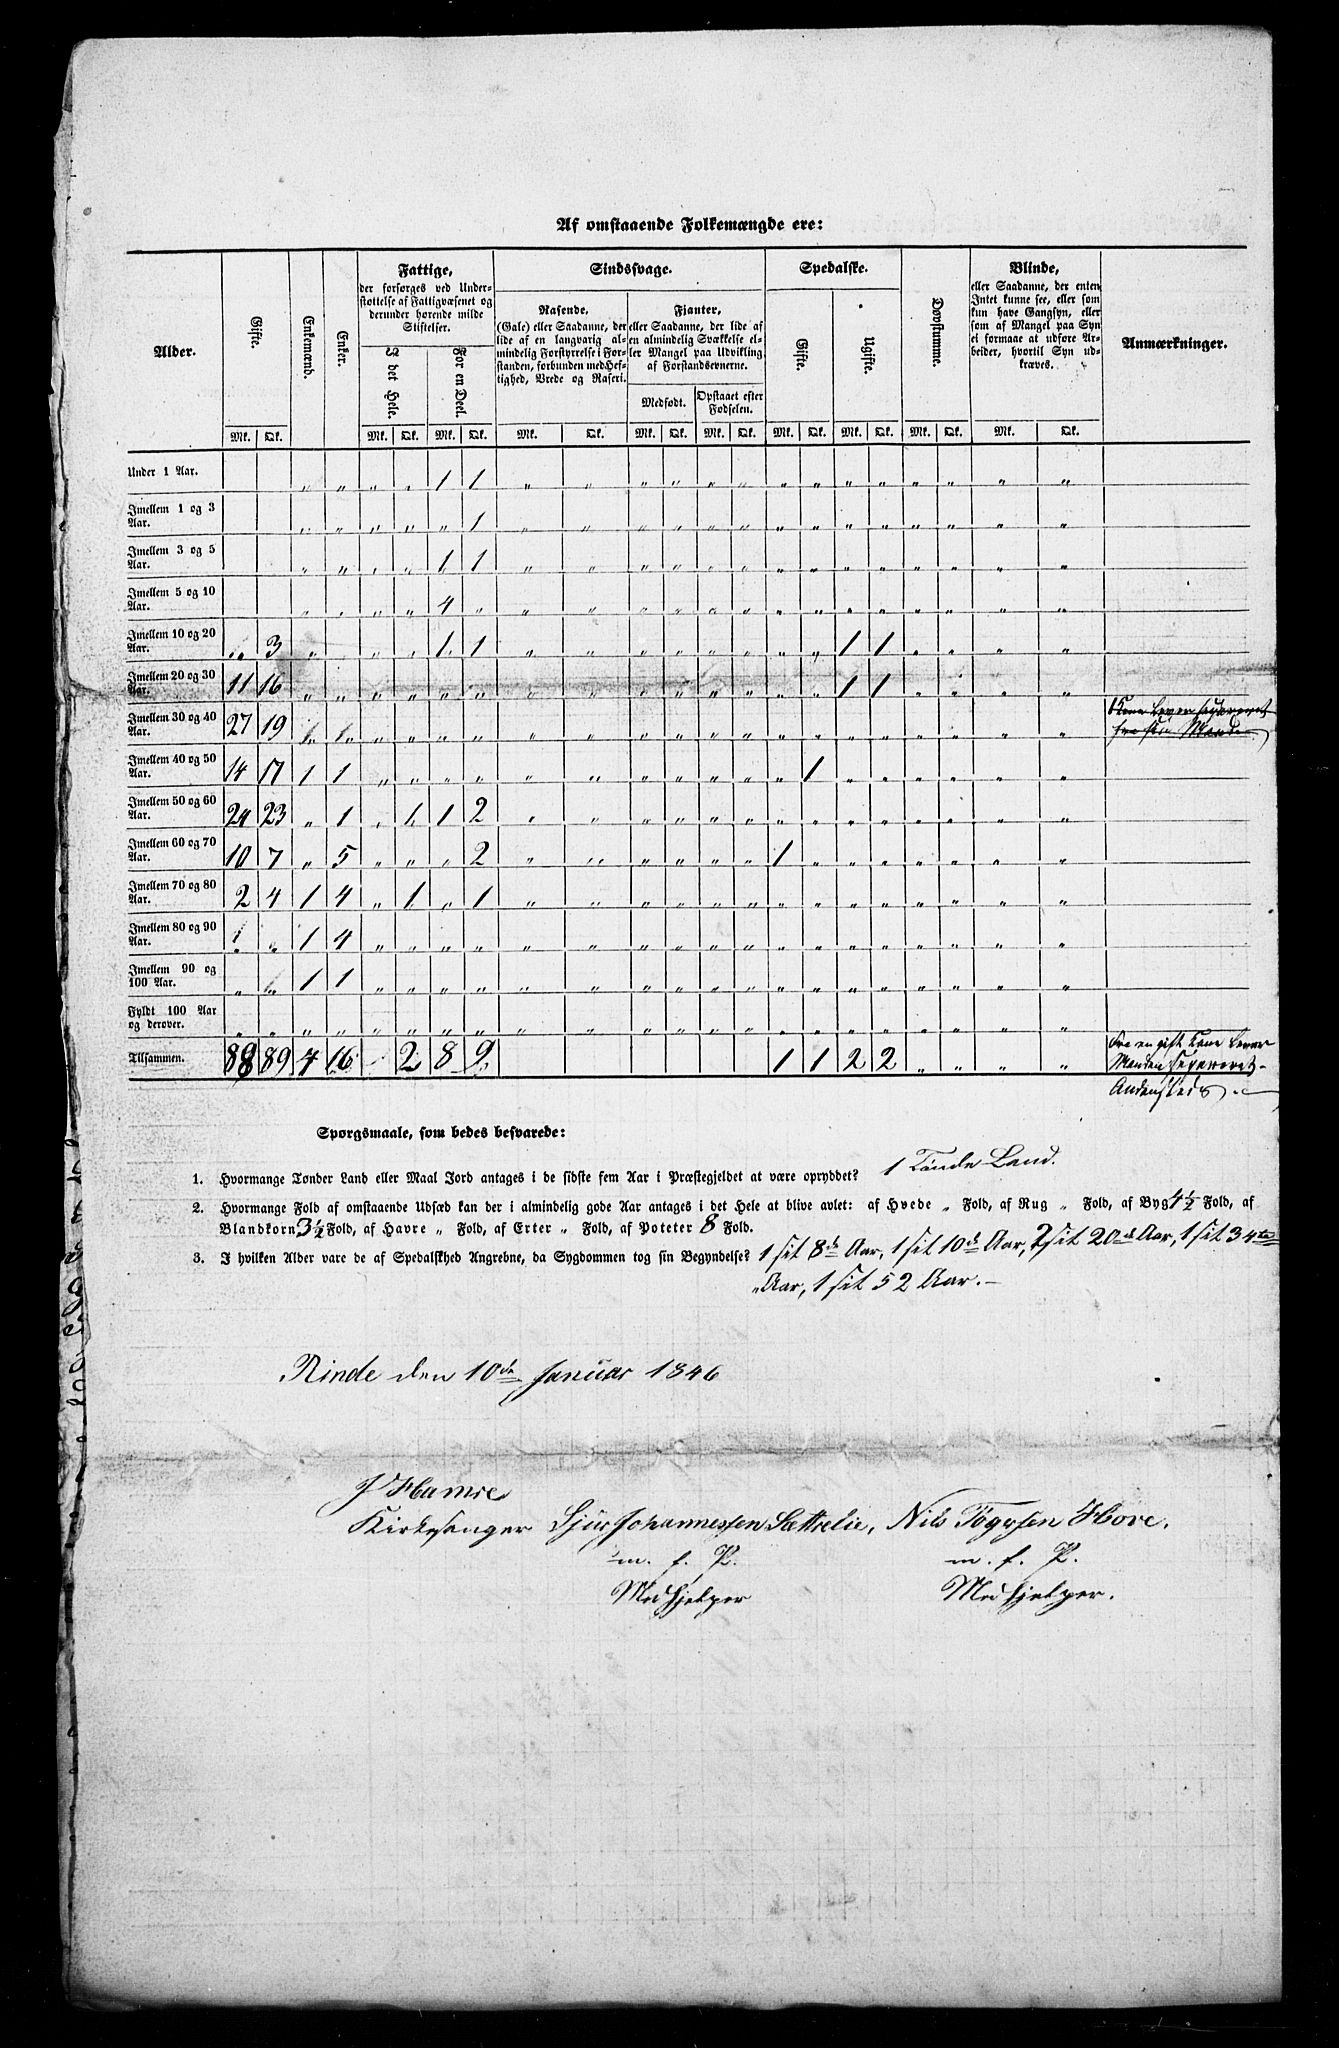 Af omstaaende Folkemængde ere:
Alder. Gifte. Enkemænd. Enker. Fattige, der forsørges ved Understøttelse af Fattigvæsenet og derunder hørende milde Stiftelser. Sindssvage. Spedalske. Døvstumme. Blinde, eller Saadanne, der enten Intet kunne see, eller som kun have Gangsyn, eller som af Mangel paa Syn ei formaae at udføre Arbeider, hvortil Syn udkræves. Anmærkninger.
I det Hele. For en Deel. Rasende, (Gale) eller Saadanne, der lide af en langvarig almindelig Forstyrrelse i Forstanden, forbunden med Heftighed, Vrede og Raseri. Fianter, eller Saadanne, der lide af en almindelig Svækkelse eller Mangel paa Udvikling af Forstandsevnerne. Gifte. Ugifte.
Medfødt. Opstaaet efter Fødselen.
Mk. Qk. Mk. Qk. Mk. Qk. Mk. Qk. Mk. Qk. Mk. Qk. Mk. Qk. Mk. Qk. Mk. Qk. Mk. Qk.
Under 1 Aar. „ „ „ „ 1 1 „ „ „ „ „ „ „ „ „ „ „ „ „ „
Imellem 1 og 3 Aar. „ „ „ „ „ 1 „ „ „ „ „ „ „ „ „ „ „ „ „ „
Imellem 3 og 5 Aar. „ „ „ „ 1 1 „ „ „ „ „ „ „ „ „ „ „ „ „ „
Imellem 5 og 10 Aar. „ „ „ „ 4 „ „ „ „ „ „ „ „ „ „ „ „ „ „ „
Imellem 10 og 20 Aar. „ 3 „ „ „ „ 1 1 „ „ „ „ „ „ „ „ 1 1 „ „ „ „
Imellem 20 og 30 Aar. 11 16 „ „ „ „ „ „ „ „ „ „ „ „ „ „ 1 1 „ „ „ „
Imellem 30 og 40 Aar. 27 19 „ „ „ „ „ „ „ „ „ „ „ „ „ „ „ „ „ „
Imellem 40 og 50 Aar. 14 17 1 1 „ „ „ „ „ „ „ „ „ „ „ 1 „ „ „ „ „ „
Imellem 50 og 60 Aar. 24 23 „ 1 „ 1 1 2 „ „ „ „ „ „ „ „ „ „ „ „ „ „
Imellem 60 og 70 Aar. 10 7 „ 5 „ „ „ 2 „ „ „ „ „ „ 1 „ „ „ „ „ „ „
Imellem 70 og 80 Aar. 2 4 1 4 „ 1 „ 1 „ „ „ „ „ „ „ „ „ „ „ „ „ „
Imellem 80 og 90 Aar. „ 1 4 „ „ „ „ „ „ „ „ „ „ „ „ „ „ „ „ „ „
Imellem 90 og 100 Aar. „ „ 1 1 „ „ „ „ „ „ „ „ „ „ „ „ „ „ „ „ „ „
Fyldt 100 Aar og derover. „ „ „ „ „ „ „ „ „ „ „ „ „ „ „ „ „ „ „ „ „ „
Tilsammen. 88 89 4 16 2 8 9 1 1 2 2 „ „ „ „
en gift Kone lever
Manden separeret
Andensteds
Spørgsmaale, som bedes besvarede:
1. Hvormange Tønder Land eller Maal Jord antages i de sidste fem Aar i Præstegjeldet at være opryddet? 1 Tønde Land.
2. Hvormange Fold af omstaaende Udsæd kan der i almindelig gode Aar antages i det Hele at blive avlet: af Hvede „ Fold, af Rug „ Fold, af Byg 4½ Fold, af
Blandkorn 3½ Fold, af Havre „ Fold, af Erter „ Fold, af Poteter 8 Fold.
3. I hvilken Alder vare de af Spedalskhed Angrebne, da Sygdommen tog sin Begyndelse? 1 sit 8de Aar, 1 sit 10de Aar, 2 sit 20de Aar, 1 sit 34te
Aar, 1 sit 52 Aar.
Rinde den 10de Januar 1846
J Hamre
Kirkesanger Sjur Johannessen Sættrelie, Nils Tøgersen Hove.
m. f. P. m. f. P.
Medhjelper Medhjelper.